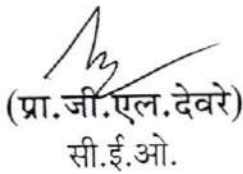 (प्रा.जी.एल.देवरे)
सी.ई.ओ.